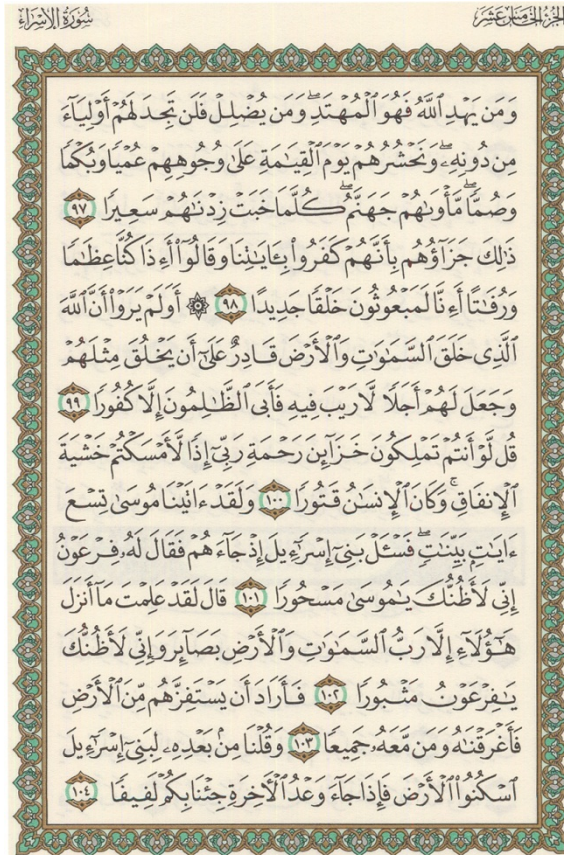 سُورَةُ الإِسْرَاءِ
الجُزْءُ الخَامِسَ عَشَرَ
وَمَن يَهْدِ ٱللَّهُ فَهُوَ ٱلْمُهْتَدِۖ وَمَن يُضْلِلْ فَلَن تَجِدَ لَهُمْ أَوْلِيَآءَ
مِن دُونِهِۦۖ وَنَحْشُرُهُمْ يَوْمَ ٱلْقِيَٰمَةِ عَلَىٰ وُجُوهِهِمْ عُمْيًا وَبُكْمًا
وَصُمًّاۖ مَّأْوَىٰهُمْ جَهَنَّمُۖ كُلَّمَا خَبَتْ زِدْنَٰهُمْ سَعِيرًا ٩٧
ذَٰلِكَ جَزَآؤُهُم بِأَنَّهُمْ كَفَرُوا۟ بِـَٔايَٰتِنَا وَقَالُوٓا۟ أَءِذَا كُنَّا عِظَٰمًا
وَرُفَٰتًا أَءِنَّا لَمَبْعُوثُونَ خَلْقًا جَدِيدًا ٩٨ ۞ أَوَلَمْ يَرَوْا۟ أَنَّ ٱللَّهَ
ٱلَّذِى خَلَقَ ٱلسَّمَٰوَٰتِ وَٱلْأَرْضَ قَادِرٌ عَلَىٰٓ أَن يَخْلُقَ مِثْلَهُمْ
وَجَعَلَ لَهُمْ أَجَلًا لَّا رَيْبَ فِيهِ فَأَبَى ٱلظَّٰلِمُونَ إِلَّا كُفُورًا ٩٩
قُل لَّوْ أَنتُمْ تَمْلِكُونَ خَزَآئِنَ رَحْمَةِ رَبِّىٓ إِذًا لَّأَمْسَكْتُمْ خَشْيَةَ
ٱلْإِنفَاقِۚ وَكَانَ ٱلْإِنسَٰنُ قَتُورًا ١٠٠ وَلَقَدْ ءَاتَيْنَا مُوسَىٰ تِسْعَ
ءَايَٰتٍۭ بَيِّنَٰتٍۖ فَسْـَٔلْ بَنِىٓ إِسْرَٰٓءِيلَ إِذْ جَآءَهُمْ فَقَالَ لَهُۥ فِرْعَوْنُ
إِنِّى لَأَظُنُّكَ يَٰمُوسَىٰ مَسْحُورًا ١٠١ قَالَ لَقَدْ عَلِمْتَ مَآ أَنزَلَ
هَٰٓؤُلَآءِ إِلَّا رَبُّ ٱلسَّمَٰوَٰتِ وَٱلْأَرْضِ بَصَآئِرَ وَإِنِّى لَأَظُنُّكَ
يَٰفِرْعَوْنُ مَثْبُورًا ١٠٢ فَأَرَادَ أَن يَسْتَفِزَّهُم مِّنَ ٱلْأَرْضِ
فَأَغْرَقْنَٰهُ وَمَن مَّعَهُۥ جَمِيعًا ١٠٣ وَقُلْنَا مِنۢ بَعْدِهِۦ لِبَنِىٓ إِسْرَٰٓءِيلَ
ٱسْكُنُوا۟ ٱلْأَرْضَ فَإِذَا جَآءَ وَعْدُ ٱلْـَٔاخِرَةِ جِئْنَا بِكُمْ لَفِيفًا ١٠٤